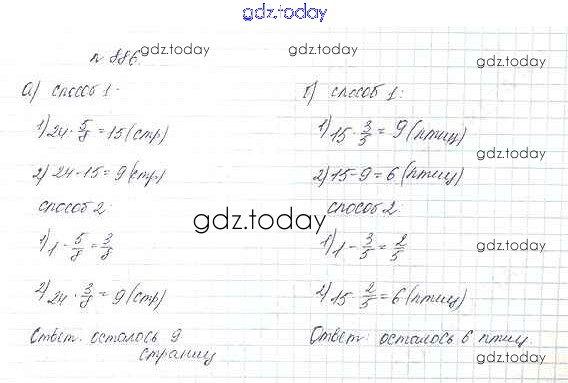 gdz.today
№ 886.
а) способ 1.
1) 24 · 5/8 = 15 (стр)
2) 24 - 15 = 9 (стр)
способ 2.
1) 1 - 5/8 = 3/8
2) 24 · 3/8 = 9 (стр)
Ответ. осталось 9
страниц
б) способ 1:
1) 15 · 3/5 = 9 (птиц)
2) 15 - 9 = 6 (птиц)
способ 2.
1) 1 - 3/5 = 2/5
2) 15 · 2/5 = 6 (птиц)
Ответ: осталось 6 птиц.
gdz.today
gdz.today
gdz.today
gdz.today
gdz.today
gdz.today
gdz.today